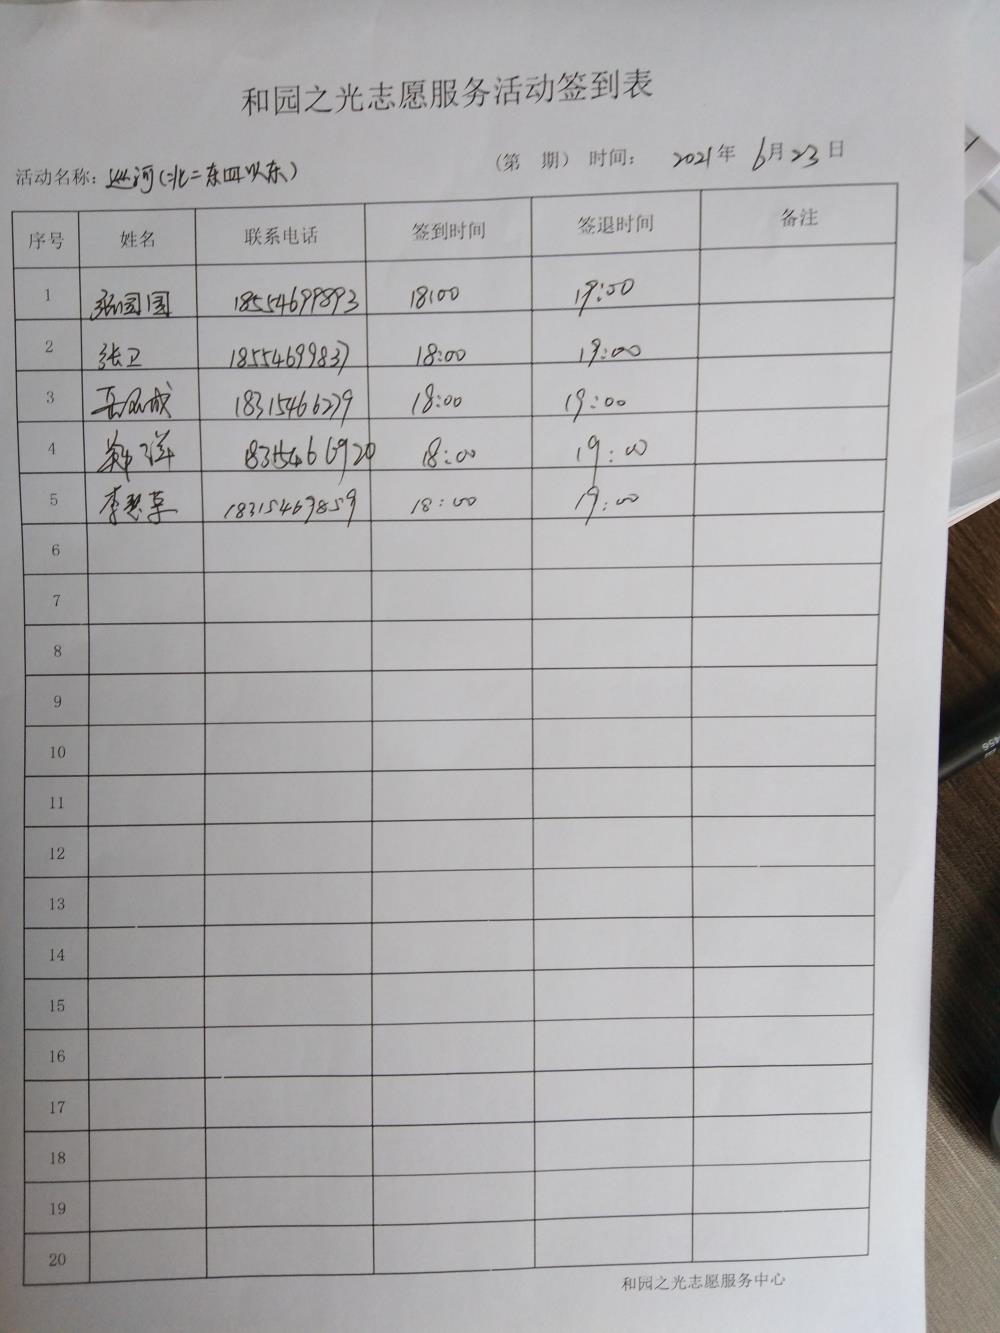 和园之光志愿服务活动签到表
活动名称：巡河（北二东四以东） （第 期） 时间： 2021年 6月23日
序号 姓名 联系电话 签到时间 签退时间 备注
1 张园园 18554699893 18:00 19:00
2 张卫 18554699837 18:00 19:00
3 18315466279 18:00 19:00
4 郑洋 18315466920 18:00 19:00
5 李慧草 18315469859 18:00 19:00
6
7
8
9
10
11
12
13
14
15
16
17
18
19
20
和园之光志愿服务中心